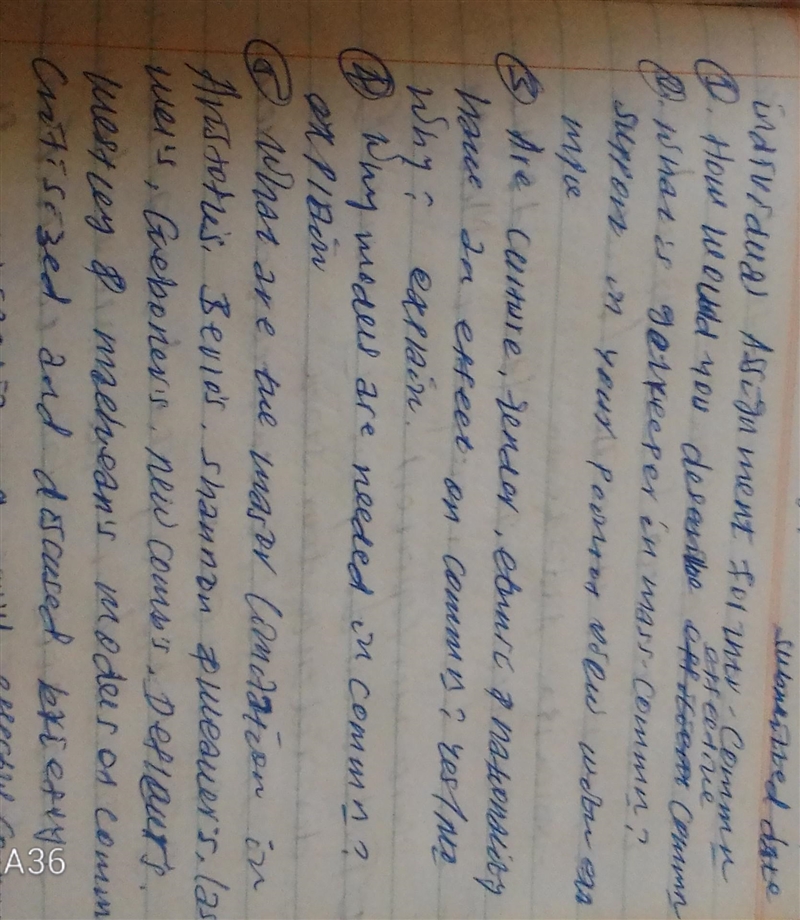 submitted date
individual Assignment for inter-commn
effective
① . How would you describe efficient commn
②. what is gatekeeper in mass-commn?
support in your point of view with exa
mple
③ Are culture, gender, ethnic & nationality
have an effect on commn? Yes/No
Why? explain.
④ why models are needed in commn?
explain
⑤ What are the major limitation in
Aristotle's, Berlo's, shannon & weaver's, las
wel's, Gerbner's, newcomb's, Defleur's,
westley & maclean's models of comm
Critisized and discused briefly
A36